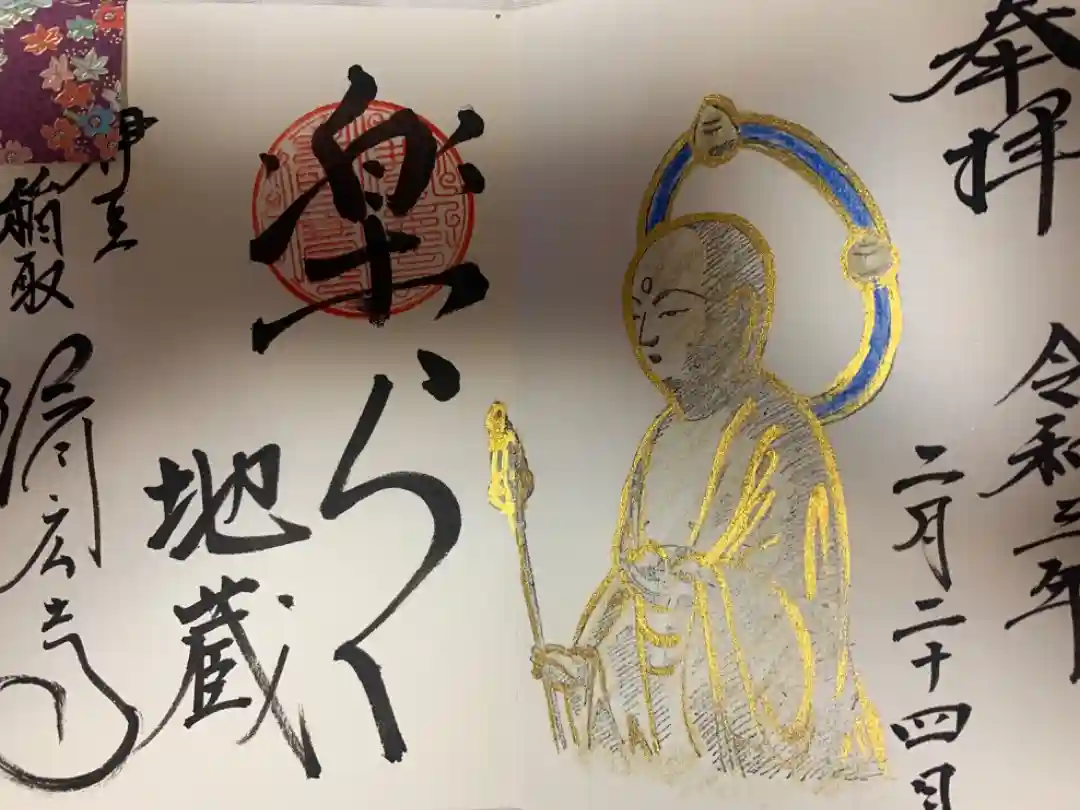 奉拝
令和三年
二月二十四日
楽らく
地蔵
伊豆
稲取
済広寺